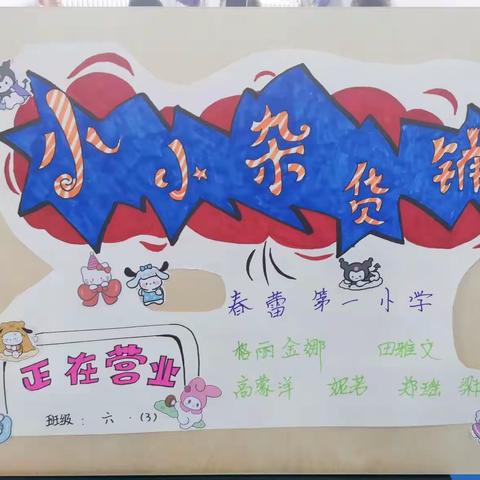 小小杂货铺
春蕾第一小学
格丽金娜 田雅文
高蒙洋 妮若 郑瑶
正在营业
班级：六．(3)